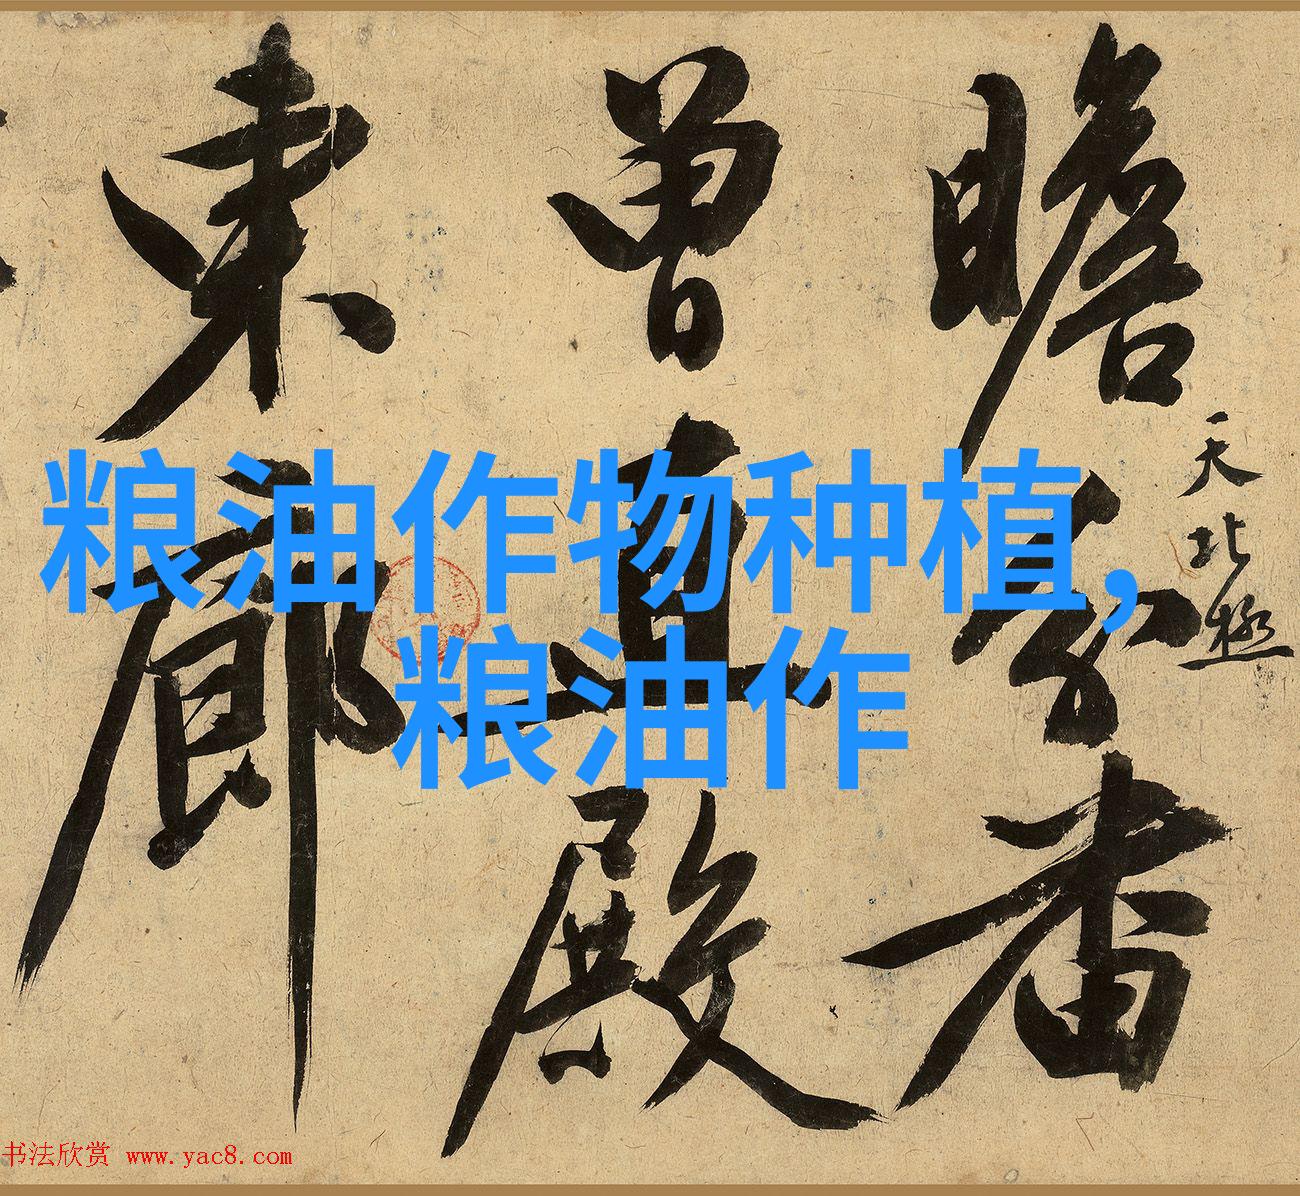 粮油作物种植,
粮油作
瞻香
天北極
曾直殿
東廊
书法欣赏 www.yac8.com